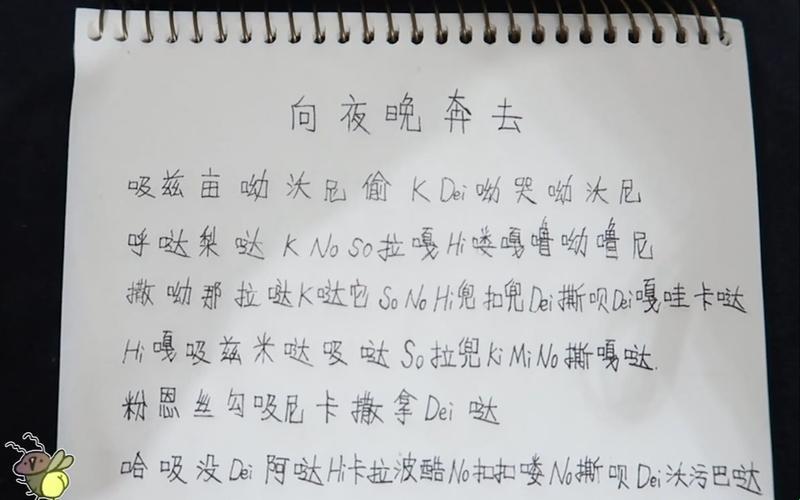 向夜晚奔去
吸兹亩呦沃尼偷K Dei呦哭呦沃尼
呼哒梨哒K No So拉嘎Hi喽嘎噜呦噜尼
撒呦那拉哒K哒它So No Hi兜扣兜Dei撕呗Dei嘎哇卡哒
Hi嘎吸兹米哒吸哒So拉兜Ki Mi No撕嘎哒.
粉恩丝勾吸尼卡撒拿Dei哒
哈吸没Dei阿哒Hi卡拉波酷No扣扣喽No撕呗Dei沃污巴哒